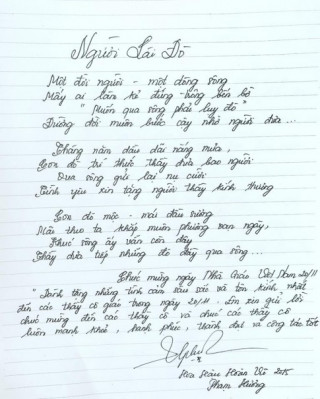 Người Lái Đò
Một đời người - một dòng sông
Mấy ai làm kẻ đứng trông bến bờ
"Muốn qua sông phải lụy đò"
Đường đời muôn bước cậy nhờ người đưa...
Tháng năm dầu dãi nắng mưa,
Con đò trí thức thầy đưa bao người.
Qua sông gửi lại nụ cười
Tình yêu xin tặng người thầy kính thương
Con đò mộc - mái đầu sương
Mãi theo ta khắp muôn phương vạn ngày,
Khúc sông ấy vẫn còn đây
Thầy đưa tiếp những đò đầy qua sông...
Chúc mừng ngày Nhà Giáo Việt Nam 20/11
"Dành tặng những tình cảm sâu sắc và tôn kính nhất
đến các thầy cô giáo trong ngày 20/11. Em xin gửi lời
chúc mừng đến các thầy cô và chúc các thầy cô
luôn mạnh khỏe, hạnh phúc, thành đạt và công tác tốt
Hoa Hậu Hoàn Vũ 2015
Phạm Hương